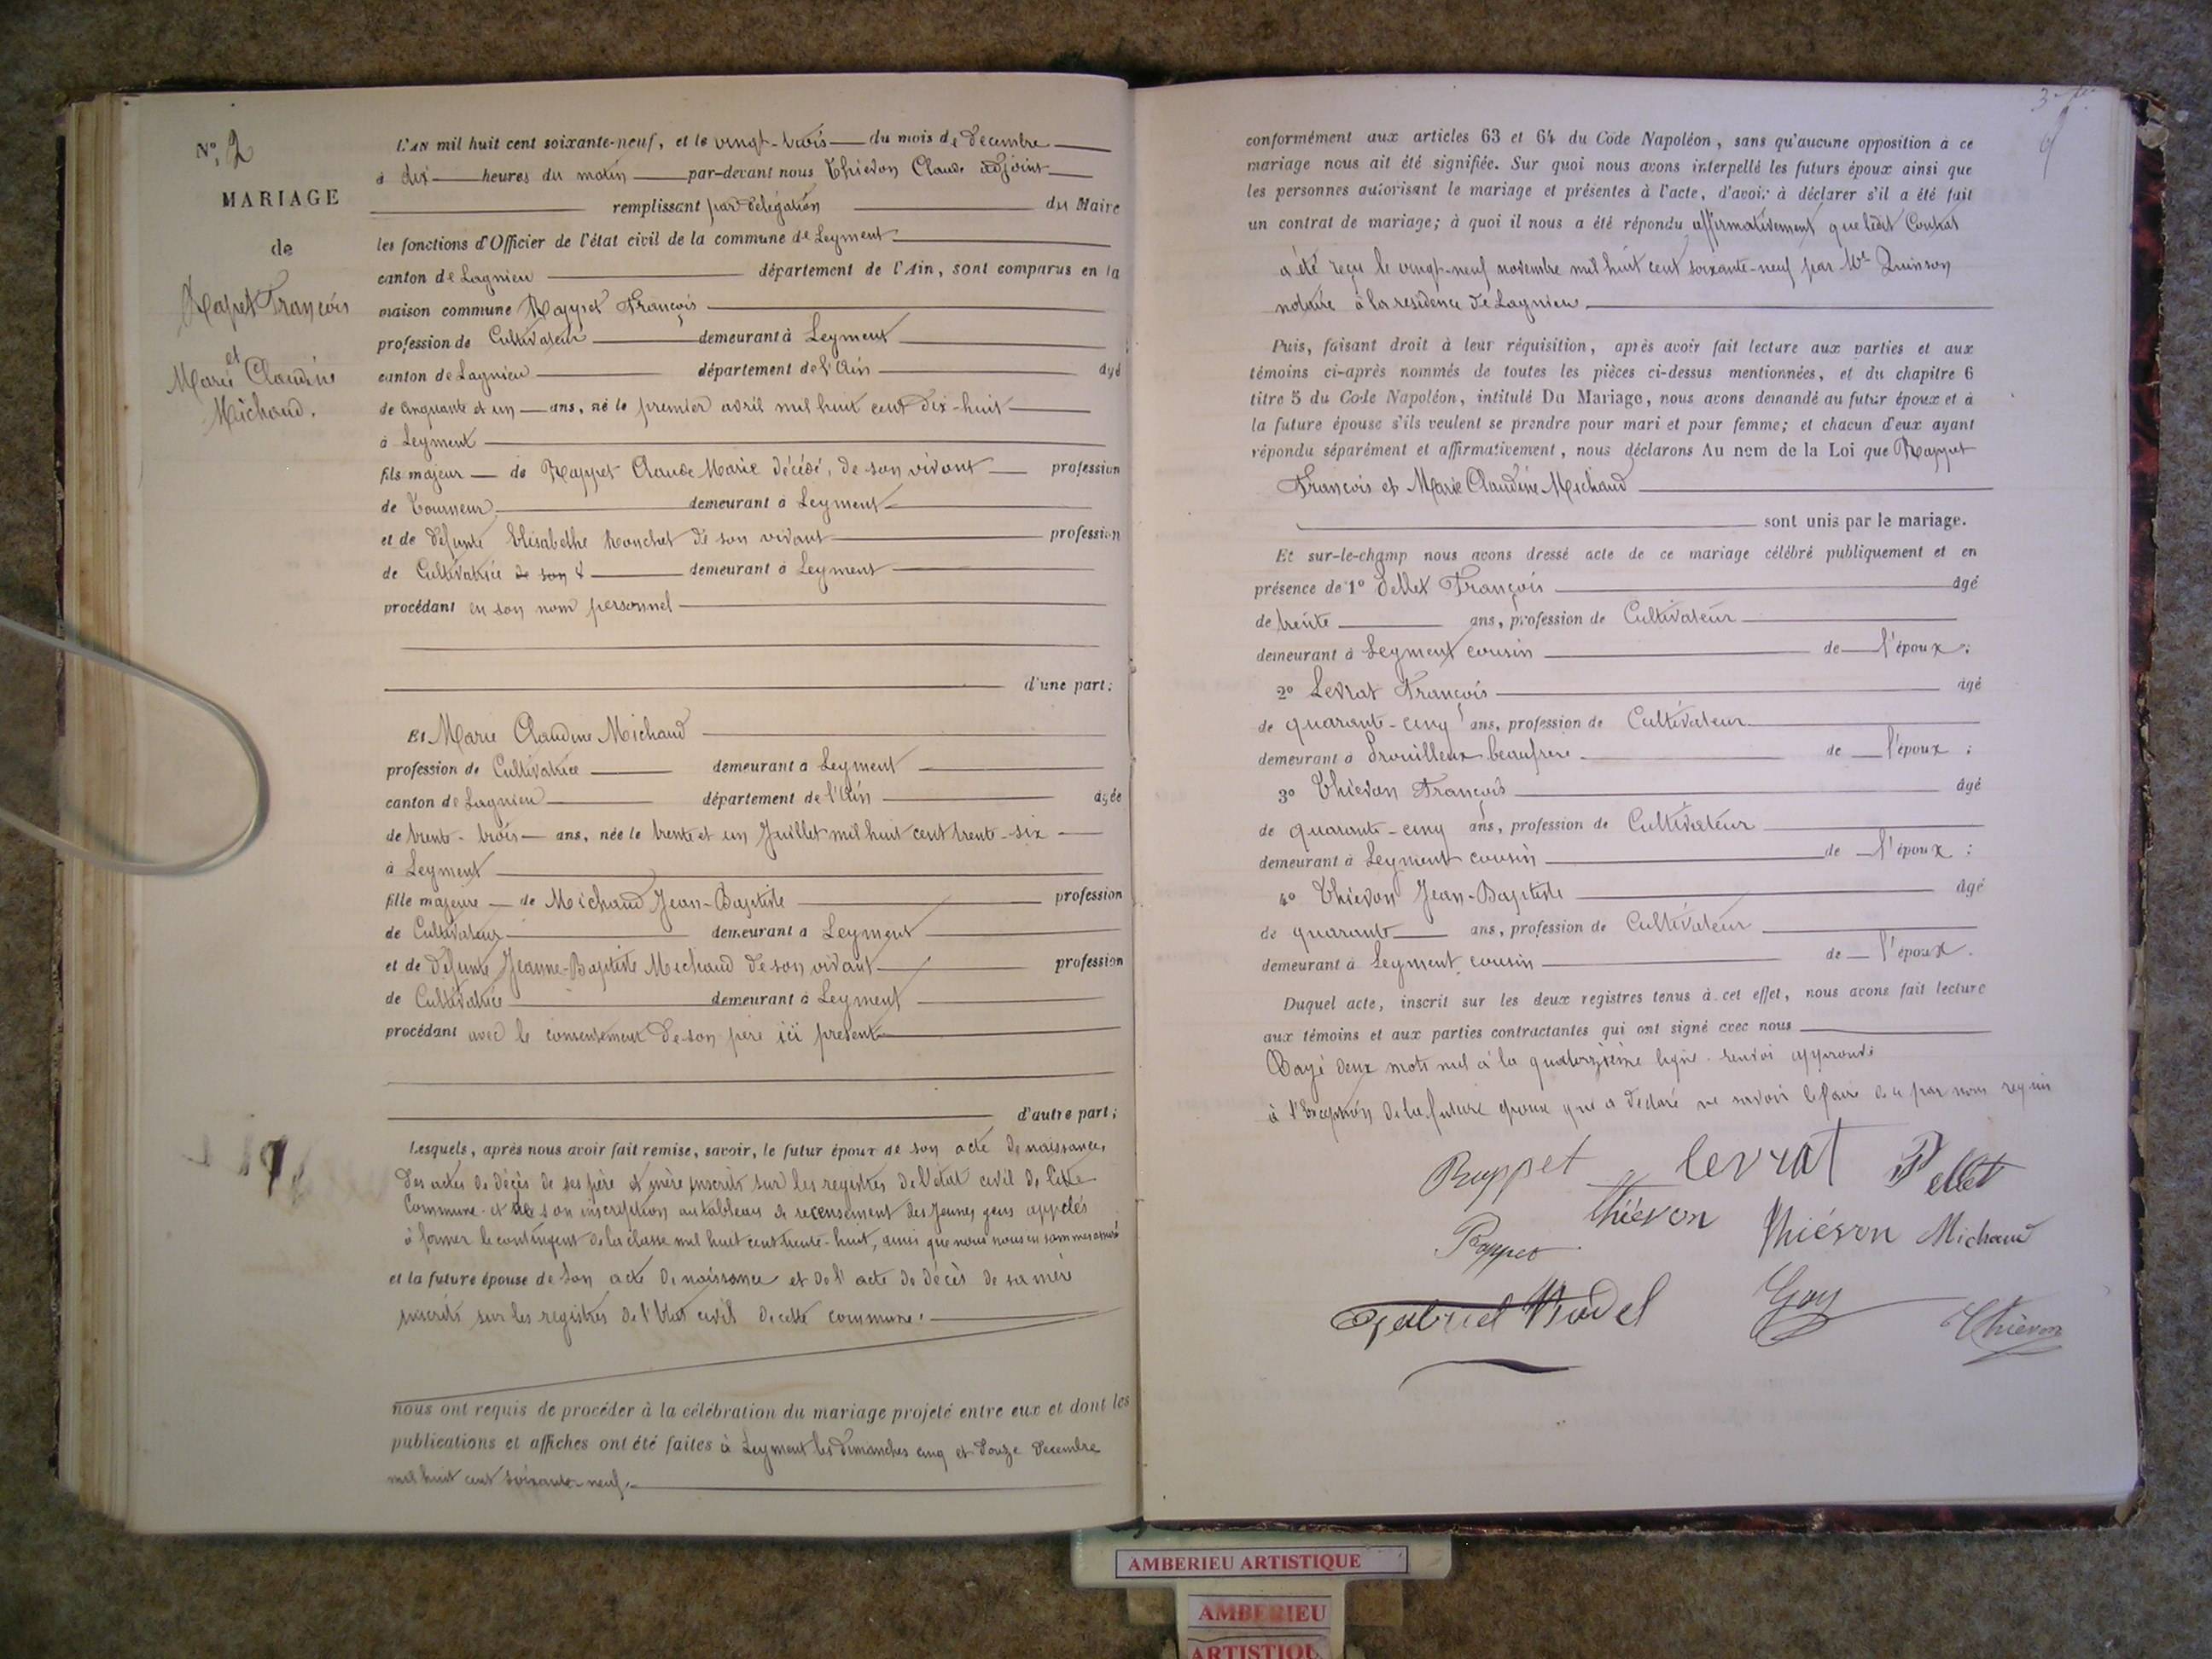 N° 2
MARIAGE
de
Rapet François
et
Marie Claudine
Michaud.
L'AN mil huit cent soixante-neuf, et le vingt-trois du mois de Decembre
à dix heures du matin par-devant nous Thievon Claude adjoint
remplissant par délégation du Maire
les fonctions d'Officier de l'état civil de la commune de Leyment
canton de Lagnieu département de l'Ain, sont comparus en la
maison commune Rappet François
profession de Cultivateur demeurant à Leyment
canton de Lagnieu département de l'Ain âgé
de cinquante et un ans, né le premier avril mil huit cent dix-huit
à Leyment
fils majeur de Rappet Claude Marie décédé, de son vivant profession
de Tourneur demeurant à Leyment
et de défunte Elisabethe de son vivant profession
de Cultivatrice de son v demeurant à Leyment
procédant en son nom personnel
d'une part;
Et Marie Claudine Michaud
profession de Cultivatrice demeurant à Leyment
canton de Lagnieu département de l'Ain âgée
de trente-trois ans, née le trente et un Juillet mil huit cent trente-six
à Leyment
fille majeure de Michaud Jean-Baptiste profession
de Cultivateur demeurant à Leyment
et de défunte Jeanne-Baptiste Michaud de son vivant profession
de Cultivatrice demeurant à Leyment
procédant avec le consentement de son père ici présent
d'autre part;
Lesquels, après nous avoir fait remise, savoir, le futur époux de son acte de naissance,
des actes de décès de ses père et mère inscrits sur les registres de l'état civil de cette
Commune et de son inscription au tableau de recensement des jeunes gens appelés
à former le contingent de la classe mil huit cent trente-huit, ainsi que nous nous en sommes assuré
et la future épouse de son acte de naissance et de l'acte de décès de sa mère
inscrits sur les registres de l'Etat civil de cette commune.
nous ont requis de procéder à la célébration du mariage projeté entre eux et dont les
publications et affiches ont été faites à Leyment les dimanches cinq et douze Decembre
mil huit cent soixante-neuf.
conformément aux articles 63 et 64 du Code Napoléon, sans qu'aucune opposition à ce
mariage nous ait été signifiée. Sur quoi nous avons interpellé les futurs époux ainsi que
les personnes autorisant le mariage et présentes à l'acte, d'avoir à déclarer s'il a été fait
un contrat de mariage; à quoi il nous a été répondu affirmativement que ledit Contrat
a été reçu le vingt-neuf novembre mil huit cent soixante-neuf par Me Quinson
notaire à la residence de Lagnieu
Puis, faisant droit à leur réquisition, après avoir fait lecture aux parties et aux
témoins ci-après nommés de toutes les pièces ci-dessus mentionnées, et du chapitre 6
titre 5 du Code Napoléon, intitulé Du Mariage, nous avons demandé au futur époux et à
la future épouse s'ils veulent se prendre pour mari et pour femme; et chacun d'eux ayant
répondu séparément et affirmativement, nous déclarons Au nom de la Loi que Rappet
François et Marie Claudine Michaud
sont unis par le mariage.
Et sur-le-champ nous avons dressé acte de ce mariage célébré publiquement et en
présence de 1° Pellet François âgé
de trente ans, profession de Cultivateur
demeurant à Leyment cousin de l'époux;
2° Levrat François âgé
de quarante-cinq ans, profession de Cultivateur
demeurant à beaufrere de l'époux;
3° Thievon François âgé
de quarante-cinq ans, profession de Cultivateur
demeurant à Leyment cousin de l'époux;
4° Thievon Jean-Baptiste âgé
de quarante ans, profession de Cultivateur
demeurant à Leyment cousin de l'époux.
Duquel acte, inscrit sur les deux registres tenus à cet effet, nous avons fait lecture
aux témoins et aux parties contractantes qui ont signé avec nous
Rayé deux mots nul à la quatorzième ligne. renvoi approuvé
à l'Exception de la future epoux qui a déclaré ne savoir le faire de ce par nous requis
Rappet Levrat Pellet
Thiévon Thiévon Michaud
Rappet
Gabriel Goy Thievon
AMBERIEU ARTISTIQUE
AMBERIEU
ARTISTIQU